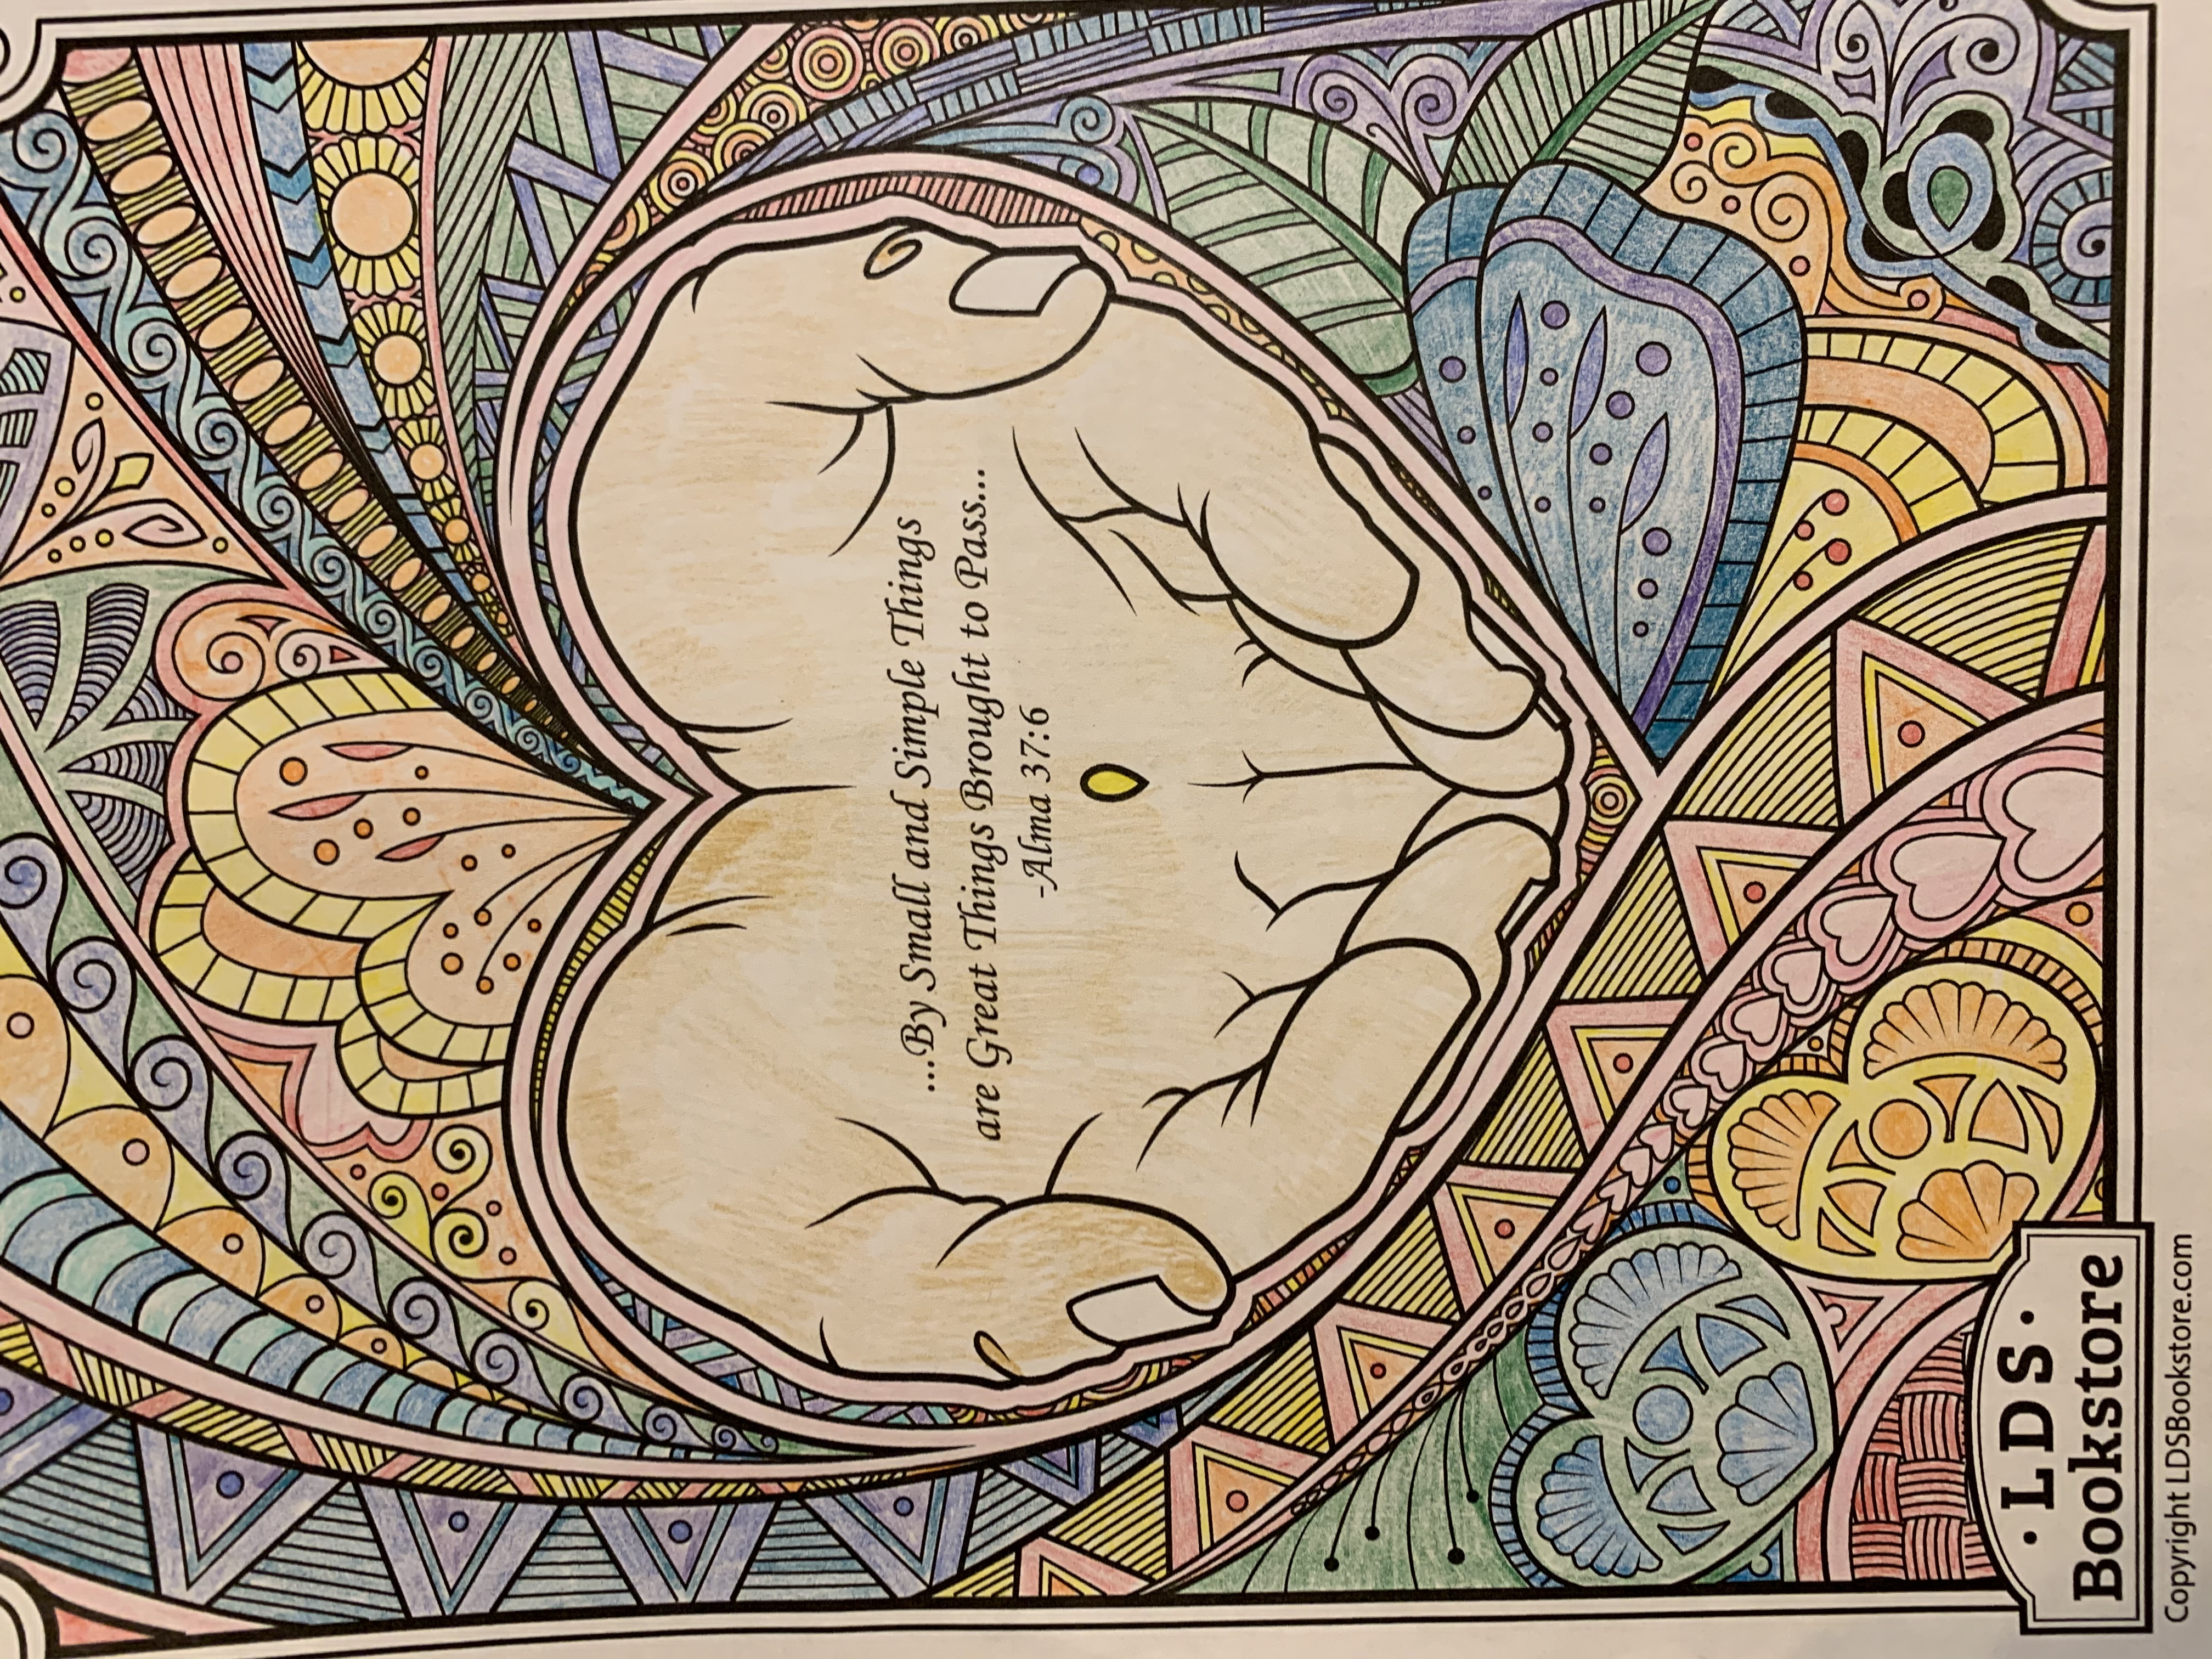 ...By Small and Simple Things
are Great Things Brought to Pass...
-Alma 37:6
· LDS ·
Bookstore
Copyright LDSBookstore.com